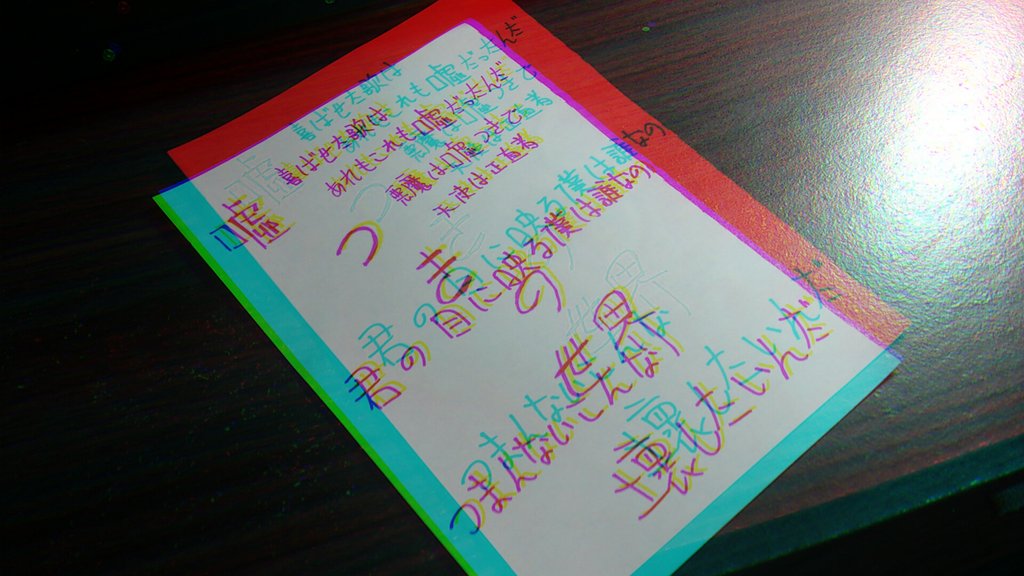 喜ばせた歌は
あれもこれも嘘だったんだ
悪魔は嘘つきで
天使は正直者
嘘つきの世界
君の目に映る僕は誰なの
つまんないこんな
壊したいんだ